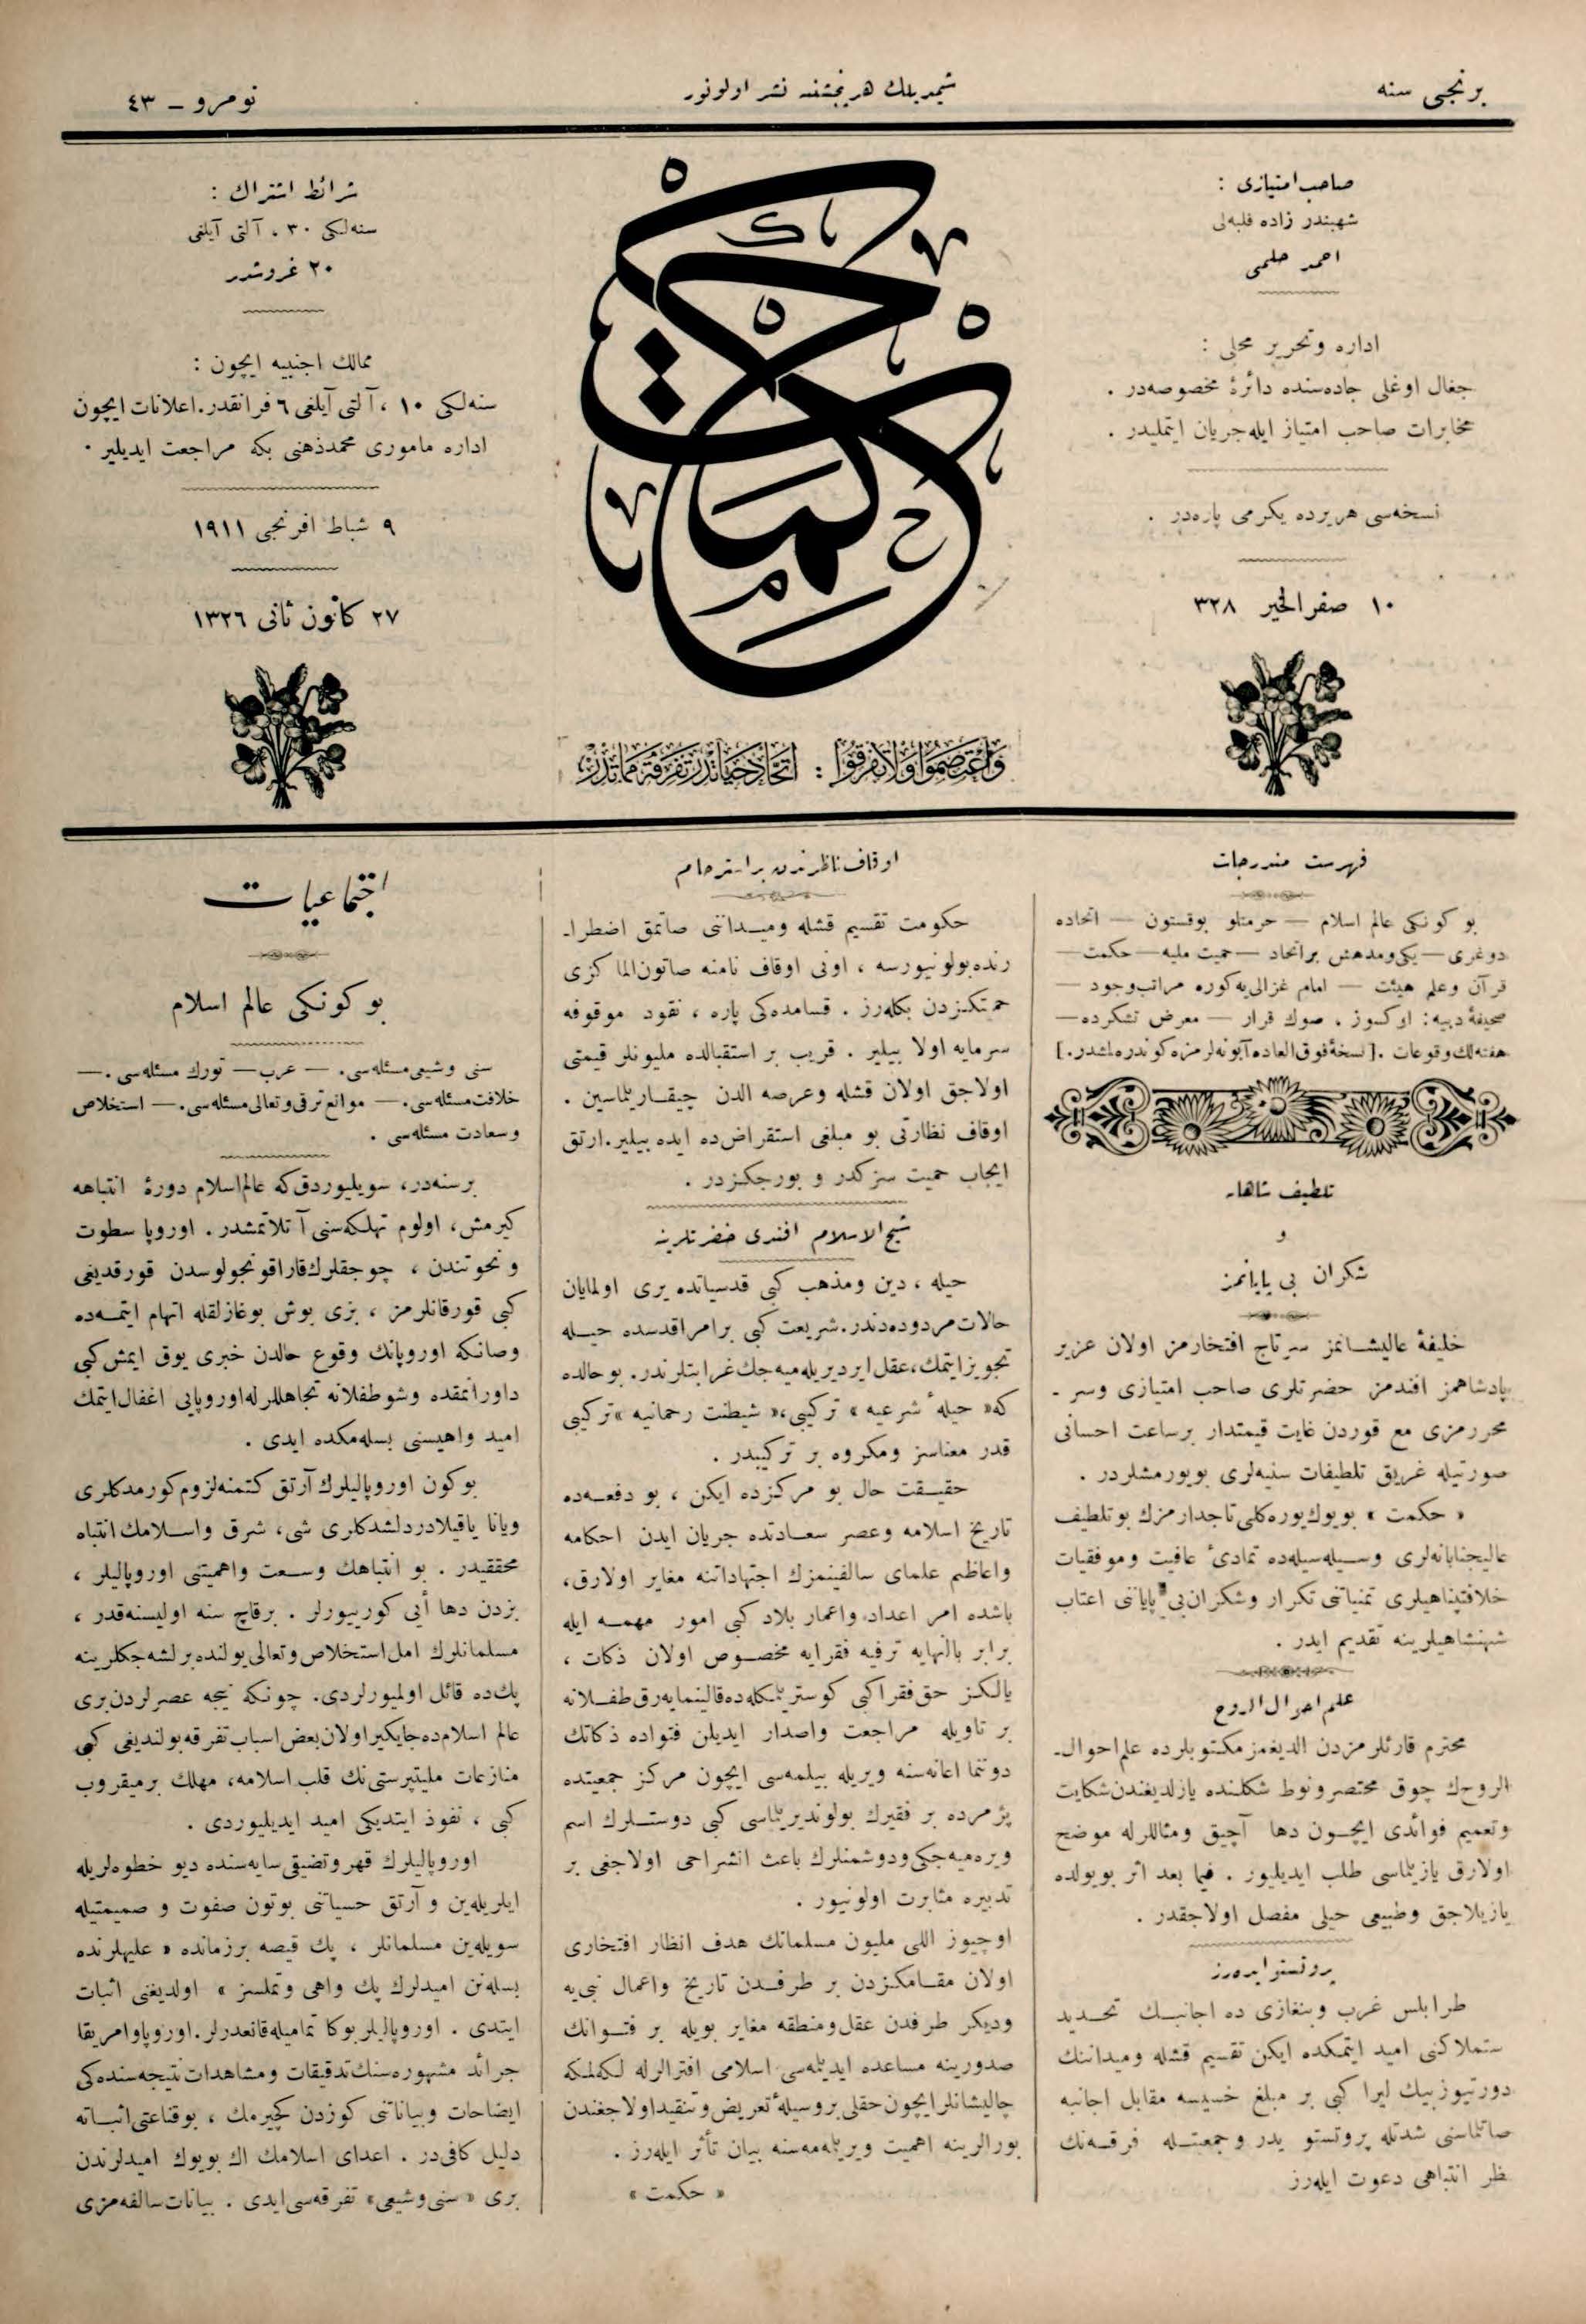 برنجی سنه
شیمدیلك هر پنجشنبه نشر اولونور
نومرو ـ ٤٣
صاحب امتیازی :
شهبندر زاده فلبه‌لی
احمد حلمی
اداره وتحریر محلی :
جغال اوغلی جاده‌سنده دائرۀ مخصوصه‌در .
مخابرات صاحب امتیاز ایله جریان ایتملیدر .
نسخه‌سی هریرده یكرمی پاره‌در .
١٠ صفرالخیر ٣٢٨
حكمت
وَاعْتَصِمُوا وَلَا تَفَرَّقُوا : اتحاد حیاتدر تفرقه مماتدر
شرائط اشتراك :
سنه‌لكی ٣٠ ، آلتی آیلغی
٢٠ غروشدر
ممالك اجنبیه ایچون :
سنه‌لكی ١٠ ، آلتی آیلغی ٦ فرانقدر. اعلانات ایچون
اداره ماموری محمدذهنی بكه مراجعت ایدیلیر .
٩ شباط افرنجی ١٩١١
٢٧ كانون ثانی ١٣٢٦
فهرست مندرجات
بو كونكی عالم اسلام — حرمتلو بوقستون — اتحاده
دوغری — یكی ومدهش براتحاد — حمیت ملیه — حكمت —
قرآن وعلم هیئت — امام غزالی‌یه كوره مراتب وجود —
صحیفۀ دبیه : اوكسوز . صوك قرار — معرض تشكرده —
هفته‌لك وقوعات . [نسخۀ فوق العاده آبونه‌لرمزه كوندره‌لمشدر.]
تلطیف شاهانه
و
شكران بی پایانمز
خلیفۀ عالیشانمز سرتاج افتخارمز اولان عزیز
پادشاهمز افندمز حضرتلری صاحب امتیازی وسر ـ
محررمزی مع قوردن غایت قیمتدار برساعت احسانی
صورتیله غریق تلطیفات سنیه‌لری بویورمشلردر .
« حكمت » بویوك یوره‌كلی تاجدارمزك بو تلطیف
عالیجنابانه‌لری وسیله‌سیله‌ده تمادیٔ عافیت وموفقیات
خلافتپناهیلری تمنیاتنی تكرار وشكران بی پایاننی اعتاب
شهنشاهیلرینه تقدیم ایدر .
علم احوال الروح
محترم قارئلرمزدن الدیغمز مكتوبلرده علم احوال ـ
الروحك چوق مختصر ونوط شكلنده یازلدیغندن شكایت
وتعمیم فوائدی ایچون دها آچیق ومثاللرله موضح
اولارق یازیلماسی طلب ایدیلیور . فیما بعد اثر بویولده
یازیلاجق وطبیعی خیلی مفصل اولاجقدر .
پروتستو ایده‌رز
طرابلس غرب وبنغازی ده اجانبك تحدید
ستملاكنی امید ایتمكده ایكن تقسیم قشله ومیداننك
دورتیوزبیك لیرا كبی بر مبلغ خسیسه مقابل اجانبه
صاتلماسنی شدتله پروتستو یدر وجمعتله فرقه‌نك
ظر انتباهی دعوت ایله‌رز
اوقاف ناظرندن بر استرحام
حكومت تقسیم قشله ومیداننی صاتمق اضطرا ـ
رنده بولونیورسه ، اونی اوقاف نامنه صاتون الماكزی
حمتكزدن بكله‌رز . قسامده‌كی پاره ، نقود موقوفه
سرمایه اولا بیلیر . قریب بر استقبالده ملیونلر قیمتی
اولاجق اولان قشله وعرصه الدن چیقاریلماسین .
اوقاف نظارتی بو مبلغی استقراض‌ده ایده بیلیر . ارتق
ایجاب حمیت سزكدر و بورجكزدر .
شیخ الاسلام افندی حضرتلرینه
حیله ، دین ومذهب كبی قدسیاتده یری اولمایان
حالات مردوده‌دندر. شریعت كبی برامراقدسده حیله
تجویز ایتمك، عقل ایردیریله‌میه‌جك غرابتلرندر. بو حالده
كه« حیلهٔ شرعیه » تركیبی،« شیطنت رحمانیه »تركیبی
قدر معناسز ومكروه بر تركیبدر .
حقیقت حال بو مركزده ایكن ، بو دفعه‌ده
تاریخ اسلامه وعصر سعادتده جریان ایدن احكامه
واعاظم علمای سالفینمزك اجتهاداتنه مغایر اولارق،
باشده امر اعداد، واعمار بلاد كبی امور مهمه ایله
برابر بالنهایه ترفیه فقرایه مخصوص اولان ذكات ،
یالكز حق فقرا كبی كوستریلمكله‌ده قالینمایه‌رق طفلانه
بر تاویله مراجعت واصدار ایدیلن فتواده ذكاتك
دوننما اعانه‌سنه ویریله بیلمه‌سی ایچون مركز جمعیتده
پژمرده بر فقیرك بولوندیریلماسی كبی دوستلرك اسم
ویره‌میه‌جكی ودوشمنلرك باعث انشراحی اولاجغی بر
تدبیره مثابرت اولونیور .
اوچیوز اللی ملیون مسلمانك هدف انظار افتخاری
اولان مقامكزدن بر طرفدن تاریخ واعمال نبی‌یه
ودیكر طرفدن عقل ومنطقه مغایر بویله بر فتوانك
صدورینه مساعده ایدیلمه‌سی اسلامی افترالرله لكه‌لمكه
چالیشانلر ایچون حقلی بر وسیلهٔ تعریض وتنقید اولاجغندن
بورالرینه اهمیت ویریله‌مه‌سنه بیان تأثر ایله‌رز .
« حكمت »
اجتماعیات
بو كونكی عالم اسلام
سنی وشیعی مسئله‌سی . — عرب — تورك مسئله‌سی . —
خلافت مسئله‌سی . — موانع ترقی وتعالی مسئله‌سی . — استخلاص
وسعادت مسئله‌سی .
برسنه‌در، سویلیوردق كه عالم اسلام دورۀ انتباهه
كیرمش، اولوم تهلكه‌سنی آتلاتمشدر . اوروپا سطوت
ونخوتندن ، چوجقلرك قاراقونجولوسدن قورقدیغی
كبی قورقانلرمز ، بزی بوش بوغازلقله اتهام ایتمه‌ده
وصانكه اوروپانك وقوع حالدن خبری یوق ایمش كبی
داورانمقده وشو طفلانه تجاهللرله اوروپایی اغفال ایتمك
امید واهیسنی بسله‌مكده ایدی .
بوكون اوروپالیلرك آرتق كتمنه لزوم كورمدكلری
ویانا یاقیلادردلشدكلری شی، شرق واسلامك انتباه
محققیدر . بو انتباهك وسعت واهمیتنی اوروپالیلر ،
بزدن دها أیی كورییورلر . برقاچ سنه اولیسنه‌قدر ،
مسلمانلرك امل استخلاص وتعالی یولنده برلشه‌جكلرینه
پك‌ده قائل اولمیورلردی. چونكه نیجه عصرلردن‌بری
عالم اسلام‌ده جایكیر اولان بعض اسباب تفرقه بولندیغی كبی
منازعات ملیتپرستی‌نك قلب اسلامه، مهلك برمیقروب
كبی ، نفوذ ایتدیكی امید ایدیلیوردی .
اوروپالیلرك قهر وتضییقی سایه‌سنده دیو خطوه‌لریله
ایلریله‌ین و آرتق حسیاتنی بوتون صفوت و صمیمتیله
سویله‌ین مسلمانلر ، پك قیصه برزمانده « علیهلرنده
بسله‌نن امیدلرك پك واهی وتملسز » اولدیغنی اثبات
ایتدی . اوروپالیلر بوكا تمامیله قانعدرلر. اوروپا وامریقا
جرائد مشهوره‌سنك تدقیقات ومشاهدات نتیجه‌سنده‌كی
ایضاحات وبیاناتنی كوزدن كچیرمك ، بوقناعتی اثباته
دلیل كافی‌در . اعدای اسلامك اك بویوك امیدلرندن
بری « سنی وشیعی» تفرقه‌سی ایدی . بیانات سالفه‌مزی